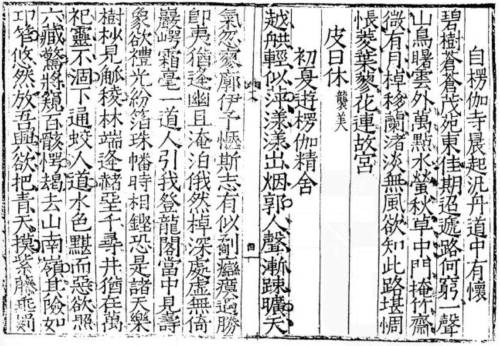 自楞伽寺晨起汎舟道中有懷
碧樹蒼蒼茂苑東佳期迢遞路何窮一聲
山鳥曙雲外萬點水螢秋草中門掩竹齋
微有月棹移蘭渚淡無風欲知此路堪惆
悵菱葉蓼花連故宮
皮日休 襲美
初夏遊楞伽精舍
越舼輕似萍漾漾出烟郭人聲漸踈曠天
氣忽寥廓伊予愜斯志有似剧癬瘼遇勝
即夷猶逢幽且淹泊俄然棹深處虛無倚
巖崿霜毫一道人引我登龍閣當中見壽
象欲禮光紛箔珠幡時相鏗恐是諸天樂
樹杪見觚稜林端逢赭堊千尋井猶在萬
祀靈不涸下通蛟人道水色黮而惡欲照
六藏驚將窺百骸愕竭去山南嶺其險如
卭筰悠然放吾興欲把青天摸紫藤垂罽